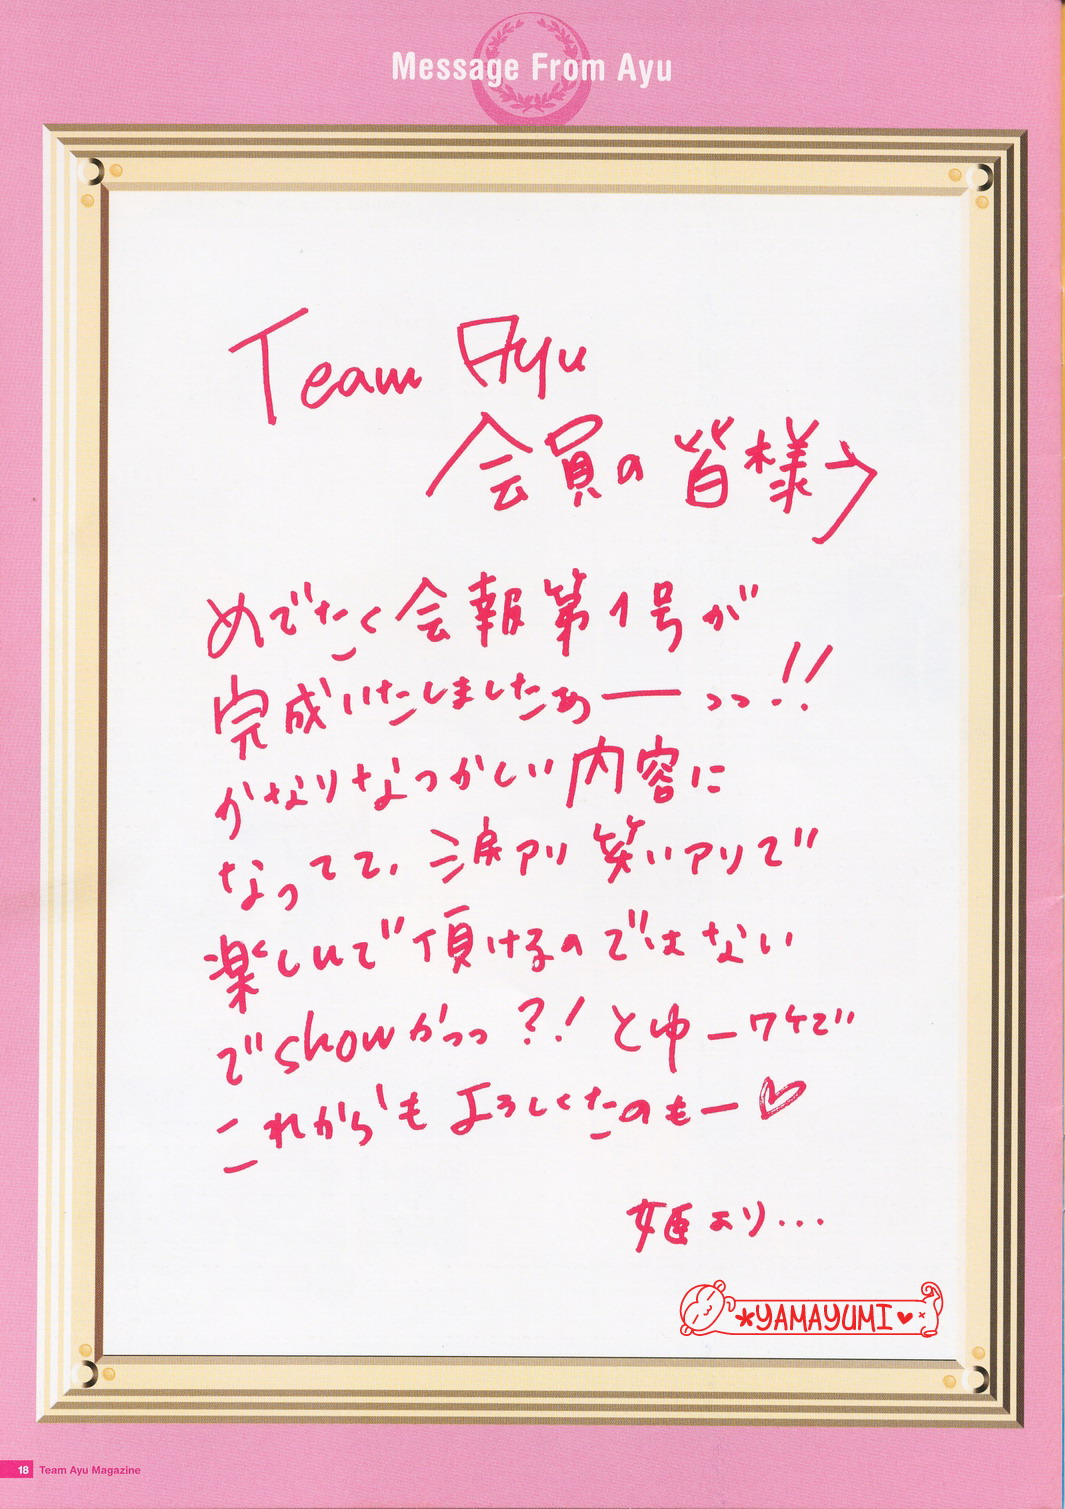 Message From Ayu
Team Ayu
会員の皆様へ
めでたく会報第1号が
完成いたしましたぁーっっ!!
かなりなつかしい内容に
なってて、涙アリ笑いアリで
楽しいで頂けるのではない
でshowかっっ?! とゆーワケで
これからもよろしくたのもー♡
姫より...
*YAMAYUMI♥×
18 Team Ayu Magazine